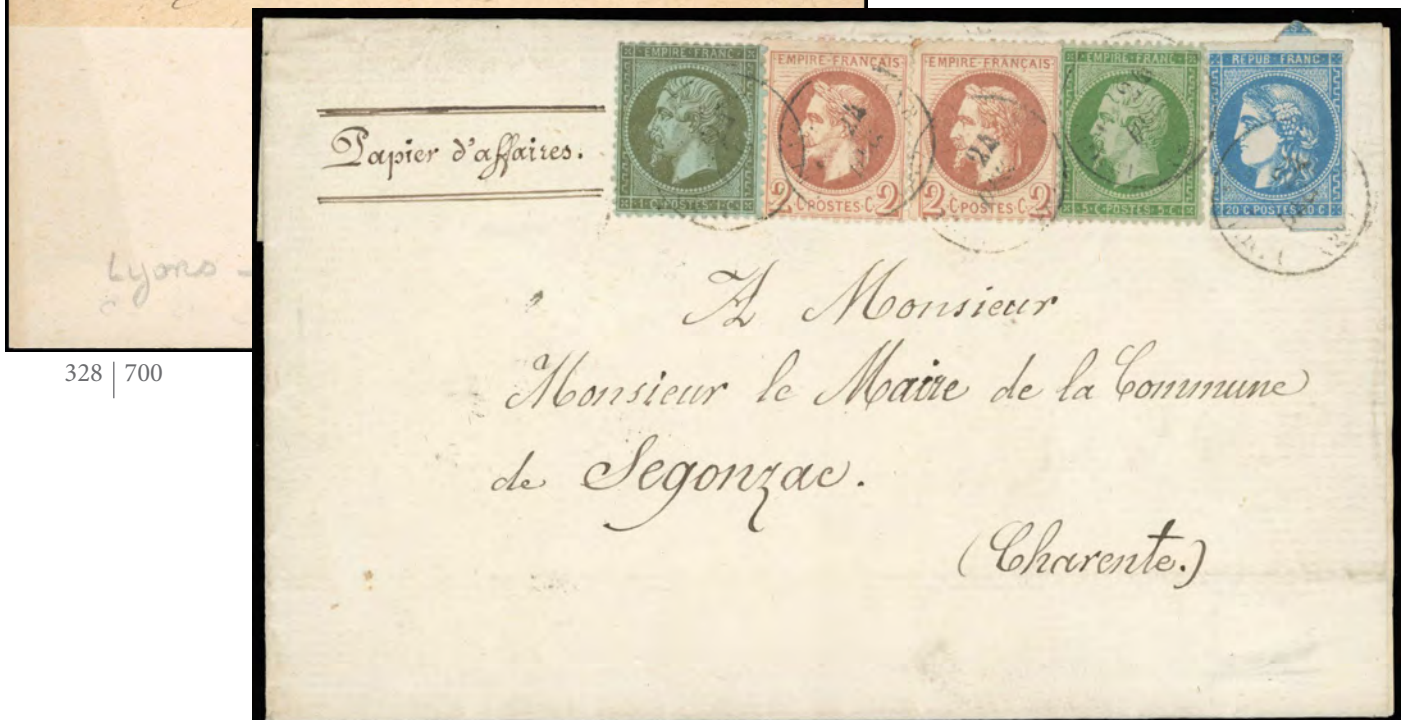 Papier d'affaires.
EMPIRE·FRANC·
1·C·POSTES·1·C·
EMPIRE·FRANÇAIS
2 C·POSTES·C· 2
24
EMPIRE·FRANÇAIS
2 C·POSTES·C· 2
24
EMPIRE·FRANC·
5·C·POSTES·5·C·
REPUB·FRANC·
20 C POSTES 20 C
A Monsieur
Monsieur le Maire de la Commune
de Segonzac.
(Charente.)
Lyons -
328 | 700